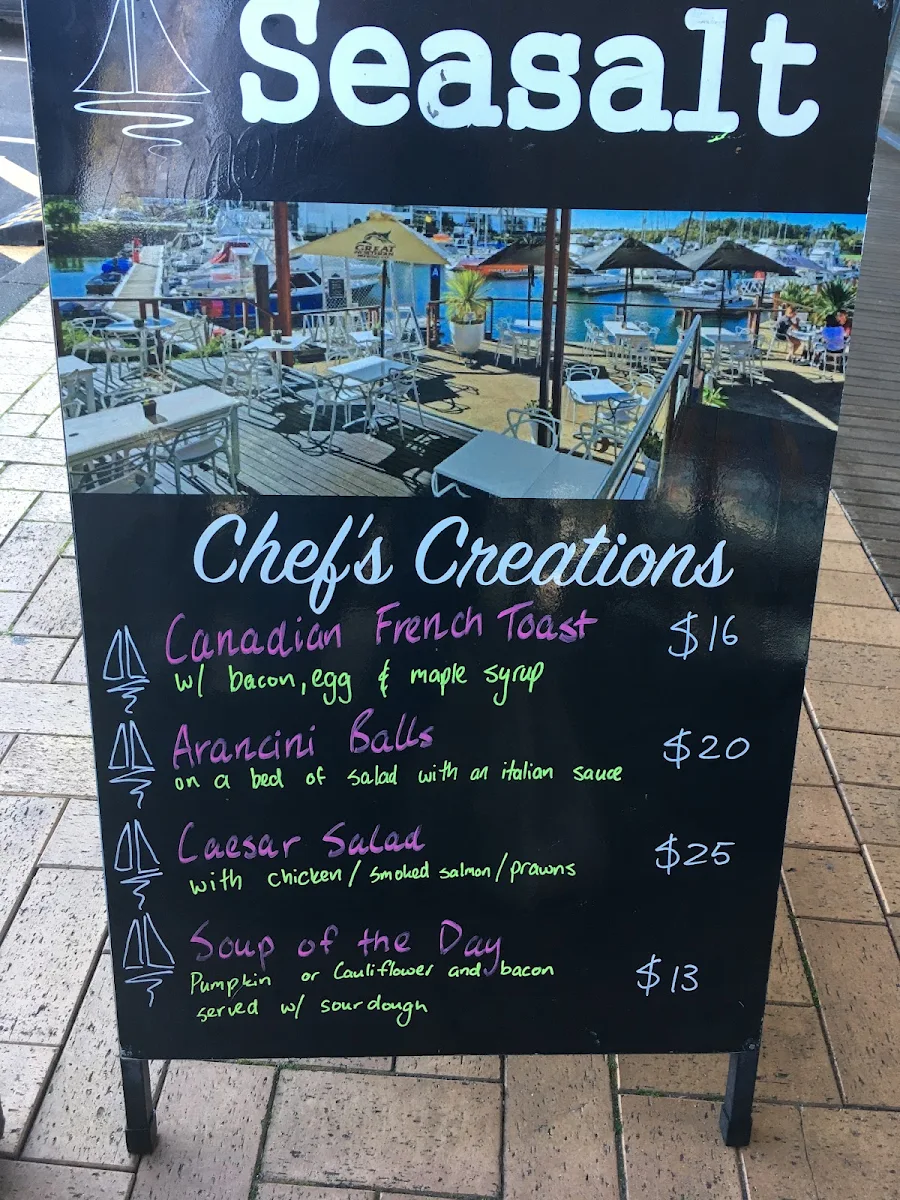 Seasalt
GREAT
Chef's Creations
Canadian French Toast $16
w/ bacon, egg & maple syrup
Arancini Balls $20
on a bed of salad with an italian sauce
Caesar Salad $25
with chicken/smoked salmon/prawns
Soup of the Day
Pumpkin or Cauliflower and bacon $13
served w/ sourdough